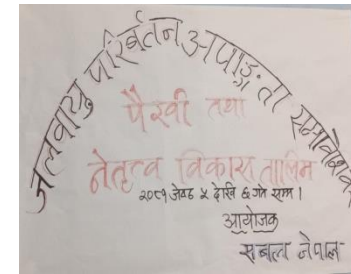 जलवायु परिर्बतन अपाङ्गता समावेशी
पैरवी तथा
नेतृत्व विकास तालिम
२०८१ जेठ ५ देखि ६ गते सम्म ।
आयोजक
सबल नेपाल